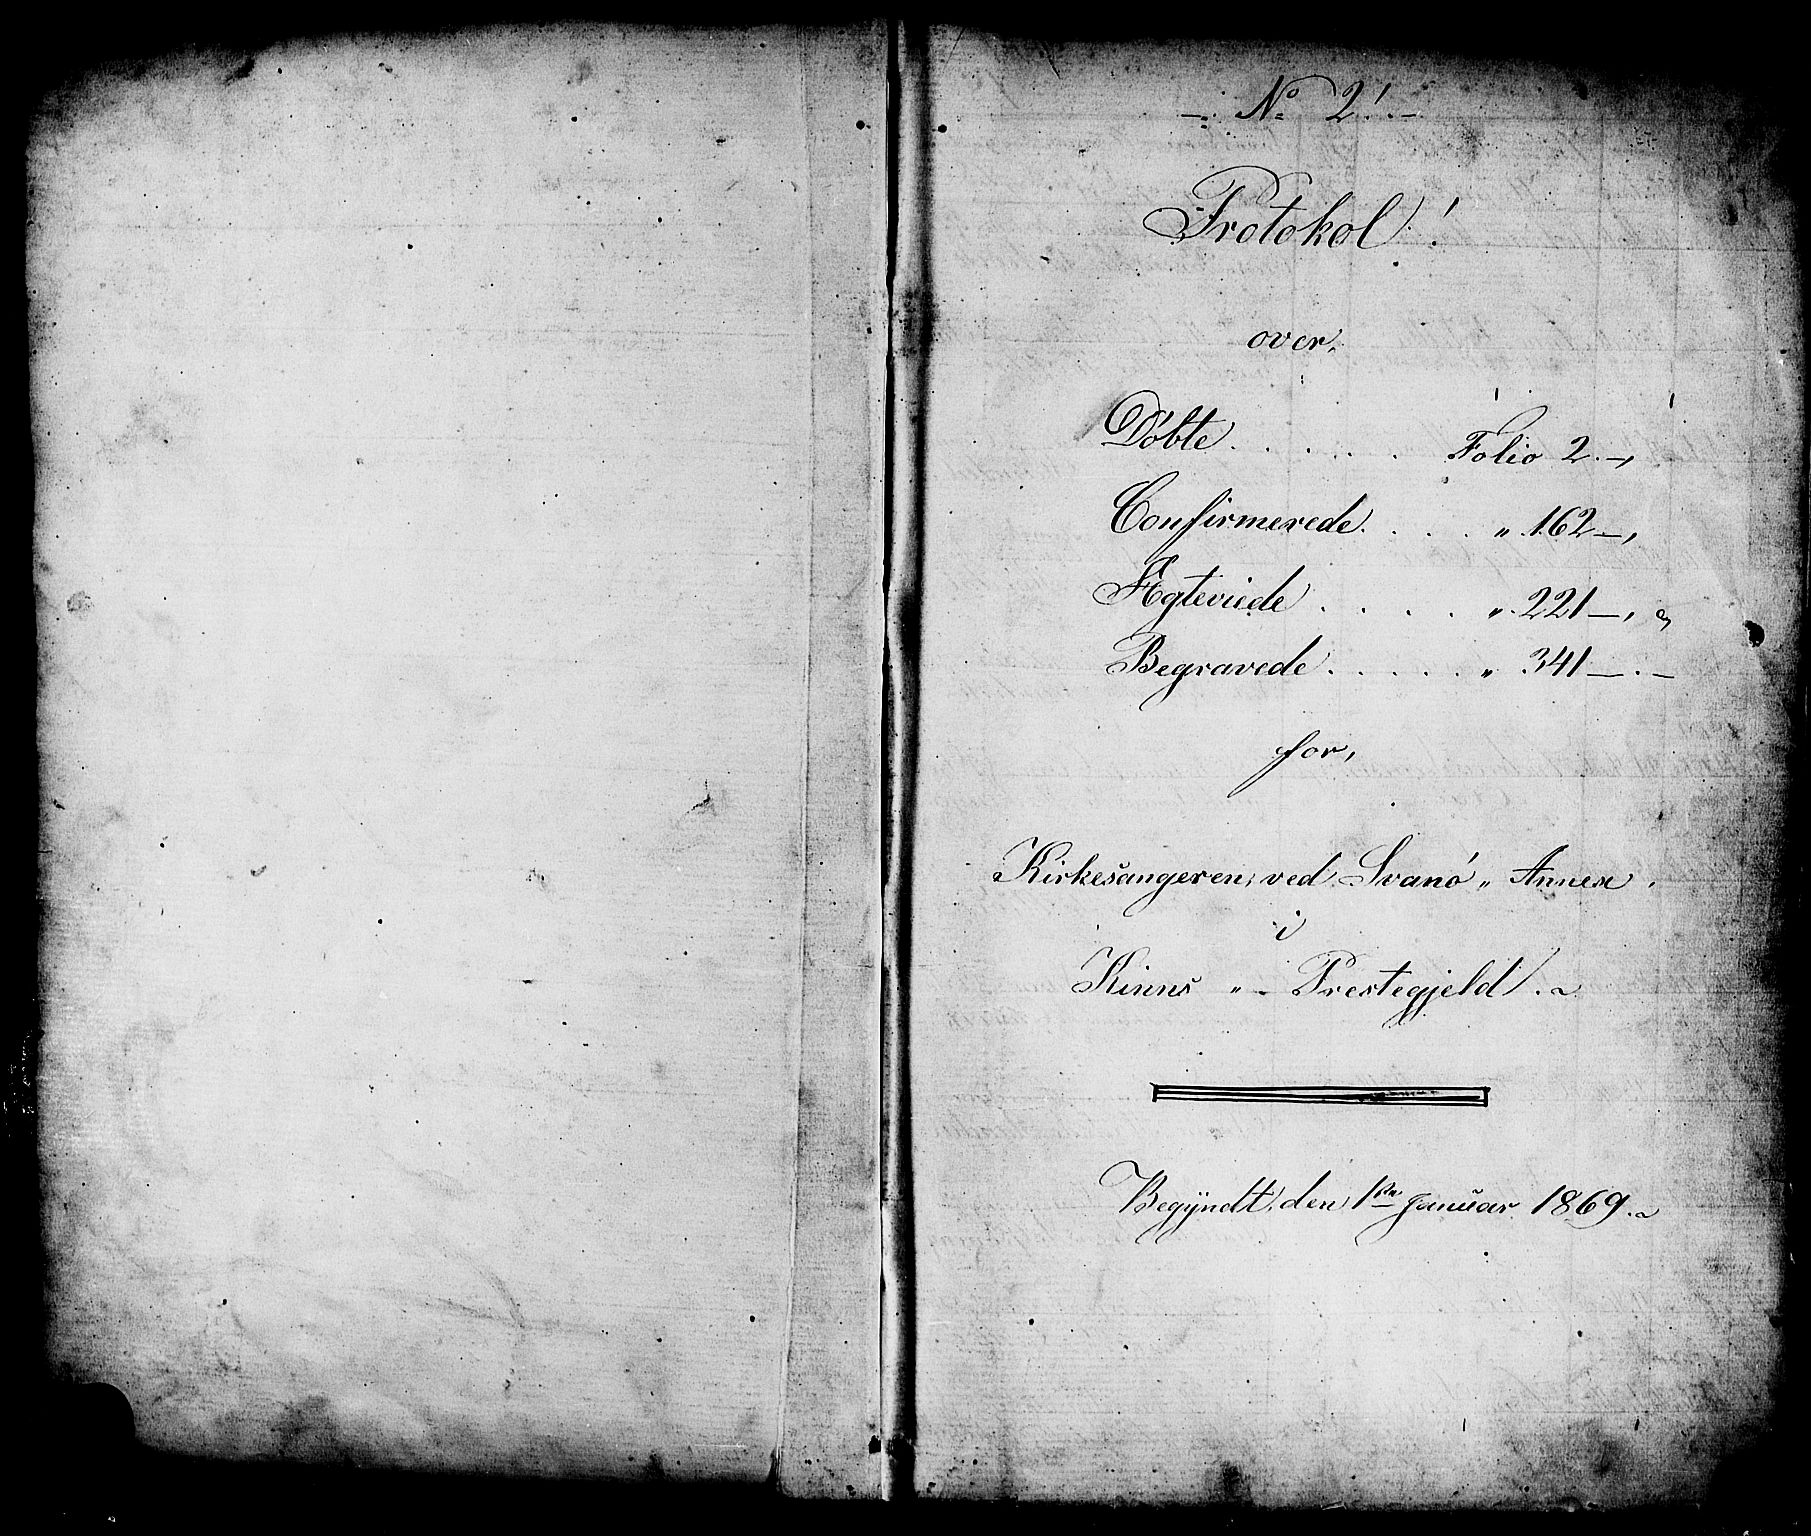 — № 2. —
Protokol!
over,
Døbte . . . . . Folio 2.—,
Confirmerede. . . . . „ 162—,
Ægteviede . . . . „ 221—, og
Begravede . . . . . „ 341—.—
for,
Kirkesangeren, ved Svanø „ Annex.
i
Kinns „ - Prestegjeld.
Begyndt, den 1ste Januar 1869.